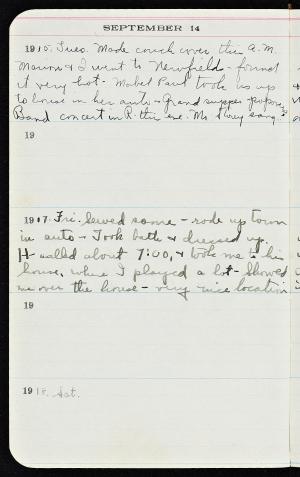 SEPTEMBER 14
1915. Tues. Made couch cover this A.M.
& I went to Newfield - found
it very hot - Mabel Paul took us up
to house in her auto - Grand supper -
Band concert in R. this eve. Ms sang.
19
1917. Fri. Sewed some - rode up town
in auto - Took bath & dressed up.
H- called about 7:00, & took me to his
house, where I played a lot - Showed
me over the house - very nice location
19
1918. Sat.